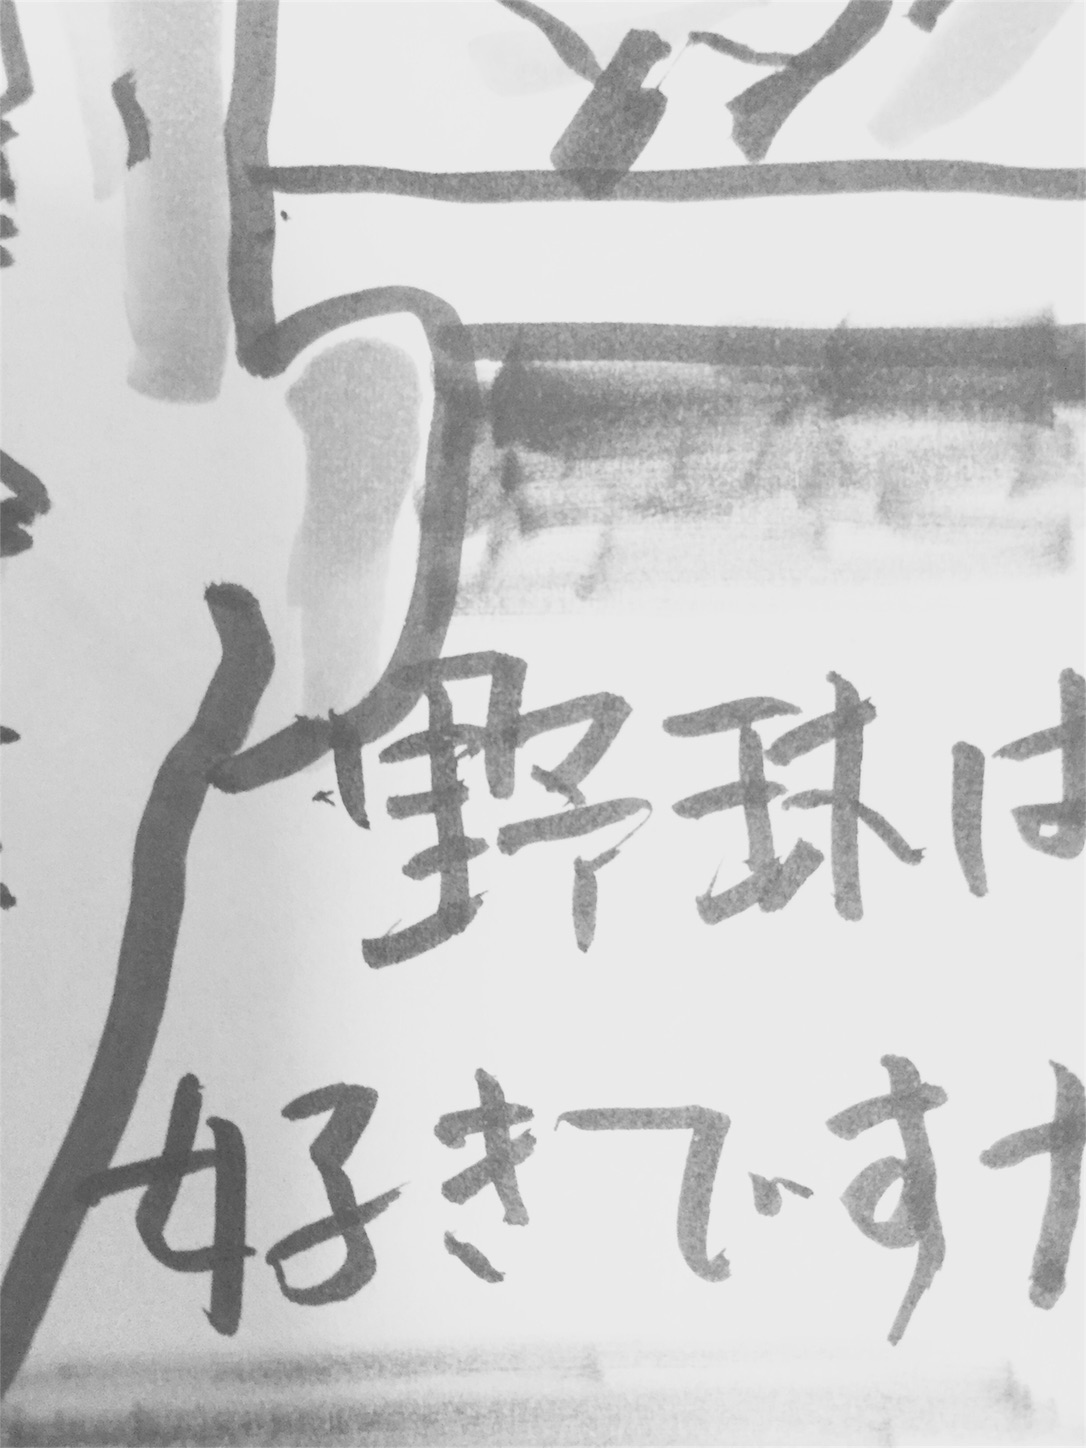 野球は
好きです